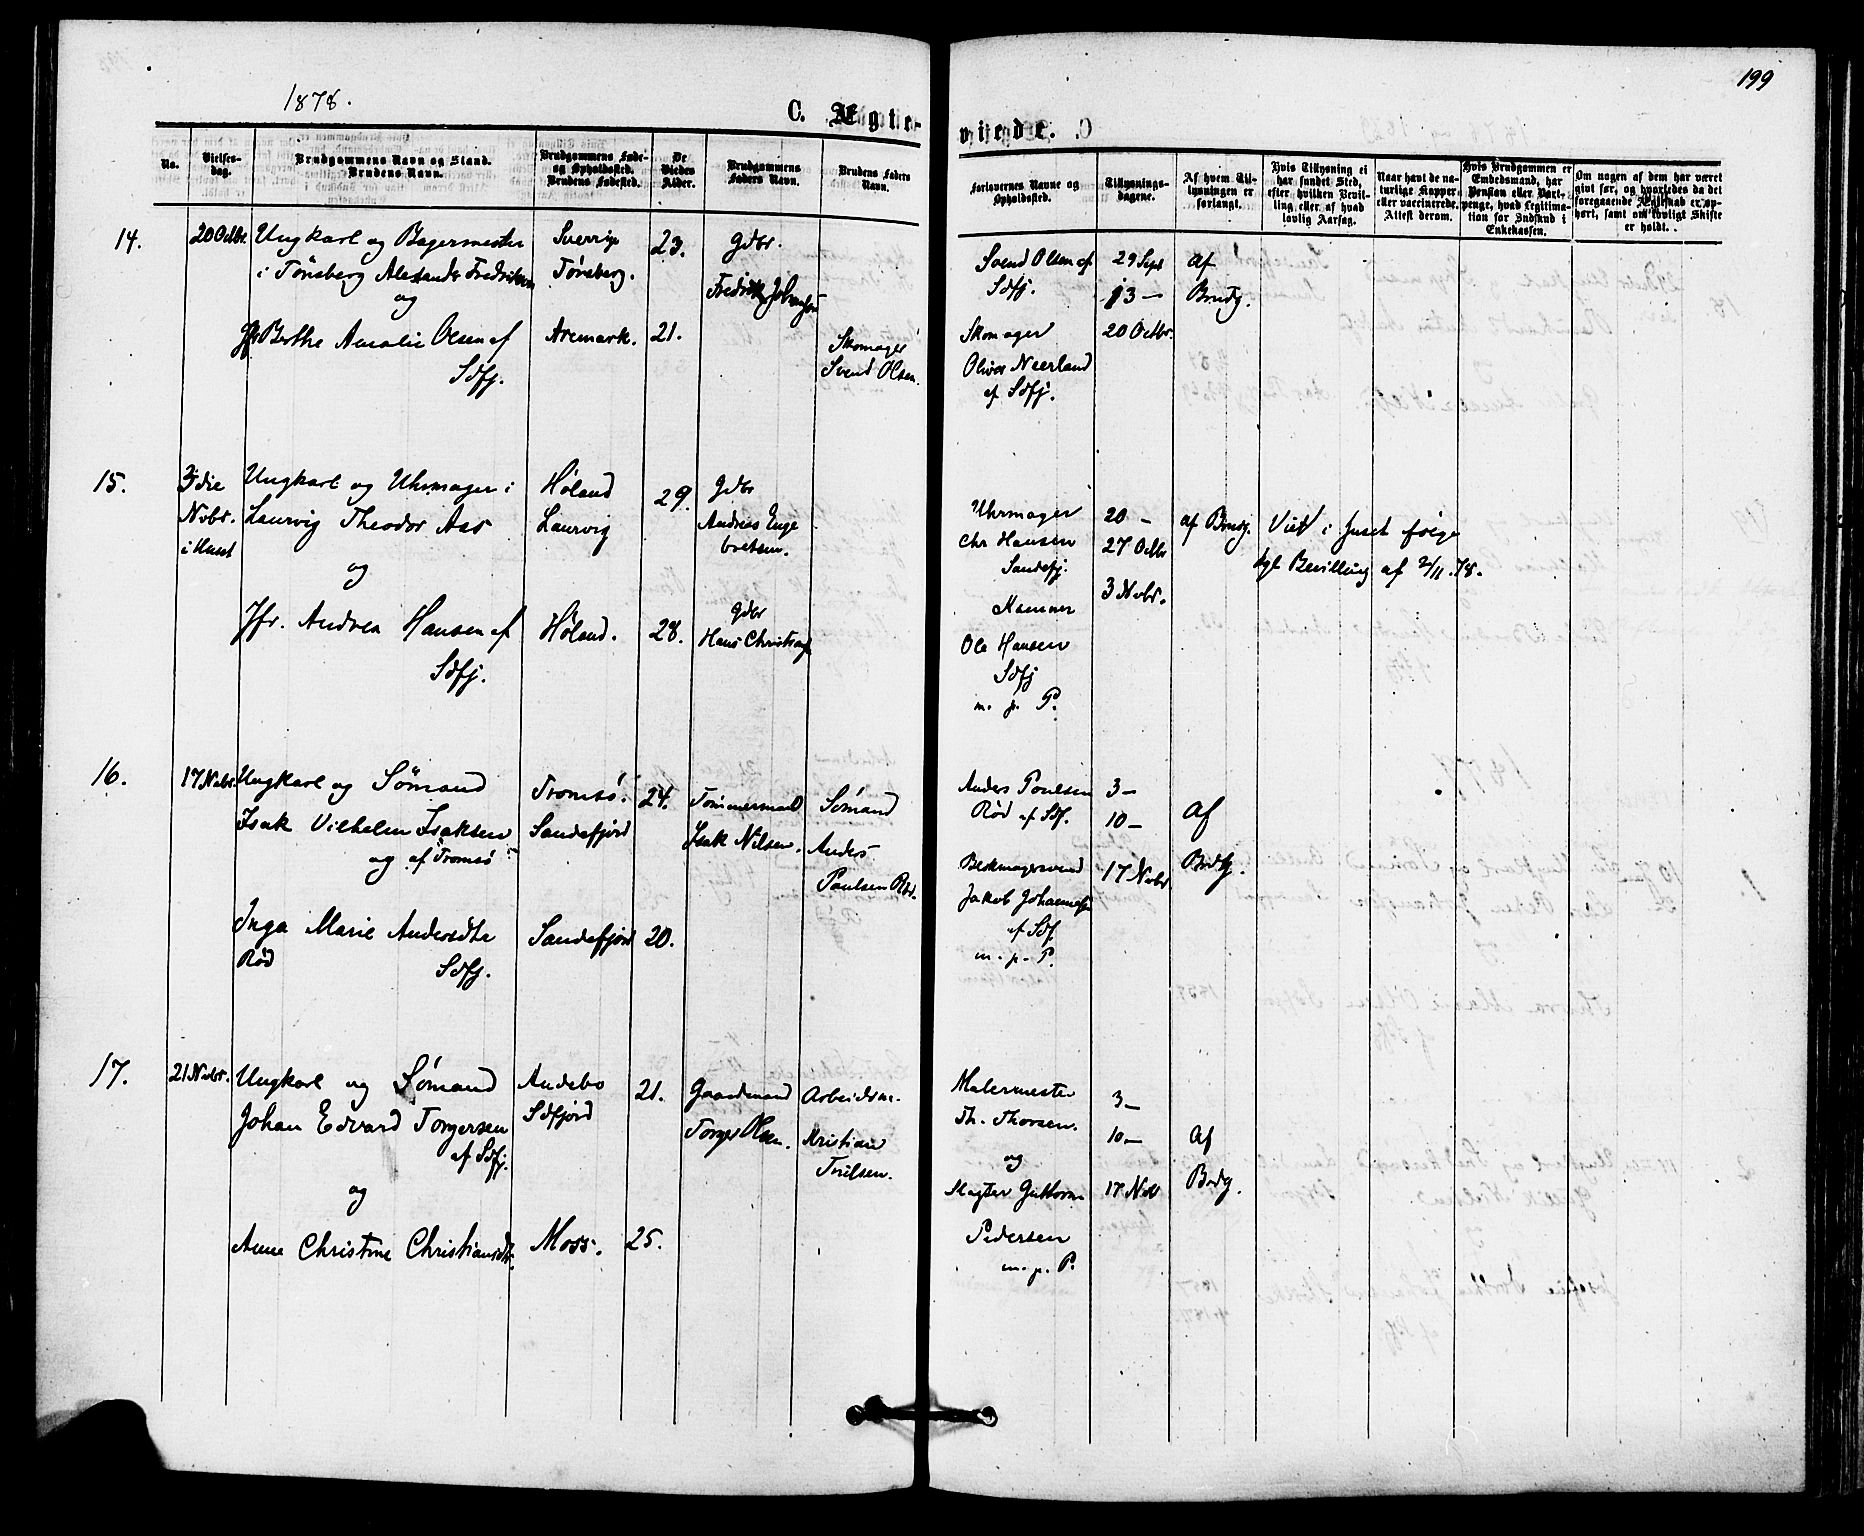 1878.
199
C. Ægte-
viede.
No.
Vielses-
dag.
Brudgommens Navn og Stand.
Brudens Navn.
Brudgommens Føde-
og Opholdssted.
Brudens Fødested.
De
Viedes
Alder.
Brudgommens
Faders Navn.
Brudens Faders
Navn.
Forlovernes Navne og
Opholdssted.
Tillysnings-
dagene.
Af hvem Til-
lysningen er
forlangt.
Hvis Tillysning ei
har fundet Sted,
efter hvilken Bevil-
ling eller af hvad
lovlig Aarsag.
Naar havt de na-
turlige Kopper,
eller vaccinerede.
Attest derom.
Hvis Brudgommen er
Embedsmand, har
Pension eller Vart-
penge, hvad Legitima-
tion for Indskud i
Enkekassen.
Om nogen af dem har været
gift før, og hvorledes da det
foregaaende Ægteskab er op-
hørt, samt om lovligt Skifte
er holdt.
14.
20 Octbr.
Ungkarl og Bagermester
i Tønsberg Alexander Fredriksen
og
Jfr Berthe Amalie Olsen af
Sdfj.
Sverrige
Tønsberg.
Aremark.
23.
21.
Gdbr.
Fredrik Johansen
Skomager
Svend Olsen.
Svend Olsen af
Sdfj.
Skomager
Oliver Neerland
af Sdfj.
29 Sept
13 –
20 Octbr.
Af
Brudg.
15.
3die
Nvbr.
i Huset
Ungkarl og Uhrmager i
Laurvig Theodor Aas
og
Jfr. Andrea Hansen af
Sdfj.
Høland
Laurvig
Høland.
29.
28.
Gdbr
Andreas Enge
bretsen.
Gdbr
Hans Christians
Uhrmager
Chr Hansen
Sandefj.
Ole Hansen
Sdfj
m. p. P.
20 –
27 Octbr
3 Nvbr.
af Brudg.
Viet i huset følge
kgl Bevilling af 2/11.78.
16.
17 Nvbr.
Ungkarl og Sømand
Isak Vilhelm Isaksen
og af Tromsø
Inga Marie Andersdtr
Rød
Sdfj.
Tromsø.
Sandefjord
Sandefjord
24.
20.
Tømmermand
Isak Nilsen.
Sømand
Anders
Paulsen Rød.
Anders Poulsen
Rød af Sdf.
Jakob Johannesen
af Sdf.
m. p. P.
3 –
10 –
17 Nvbr
Af
Brdg.
17.
21 Nvbr.
Ungkarl og Sømand
Johan Edvard Torgersen
af Sdfj.
og
Anne Christine Christiansdtr.
Andebo
Sdfjord
Moss.
21.
25.
Gaardmand
Torger Olsen.
Arbeidsm.
Kristian
Trulsen.
Malermester
Th. Thorsen.
og
Slagter Guttorm
Pedersen
m. p. P.
3 –
10 –
17 Nvb
Af
Brdg.